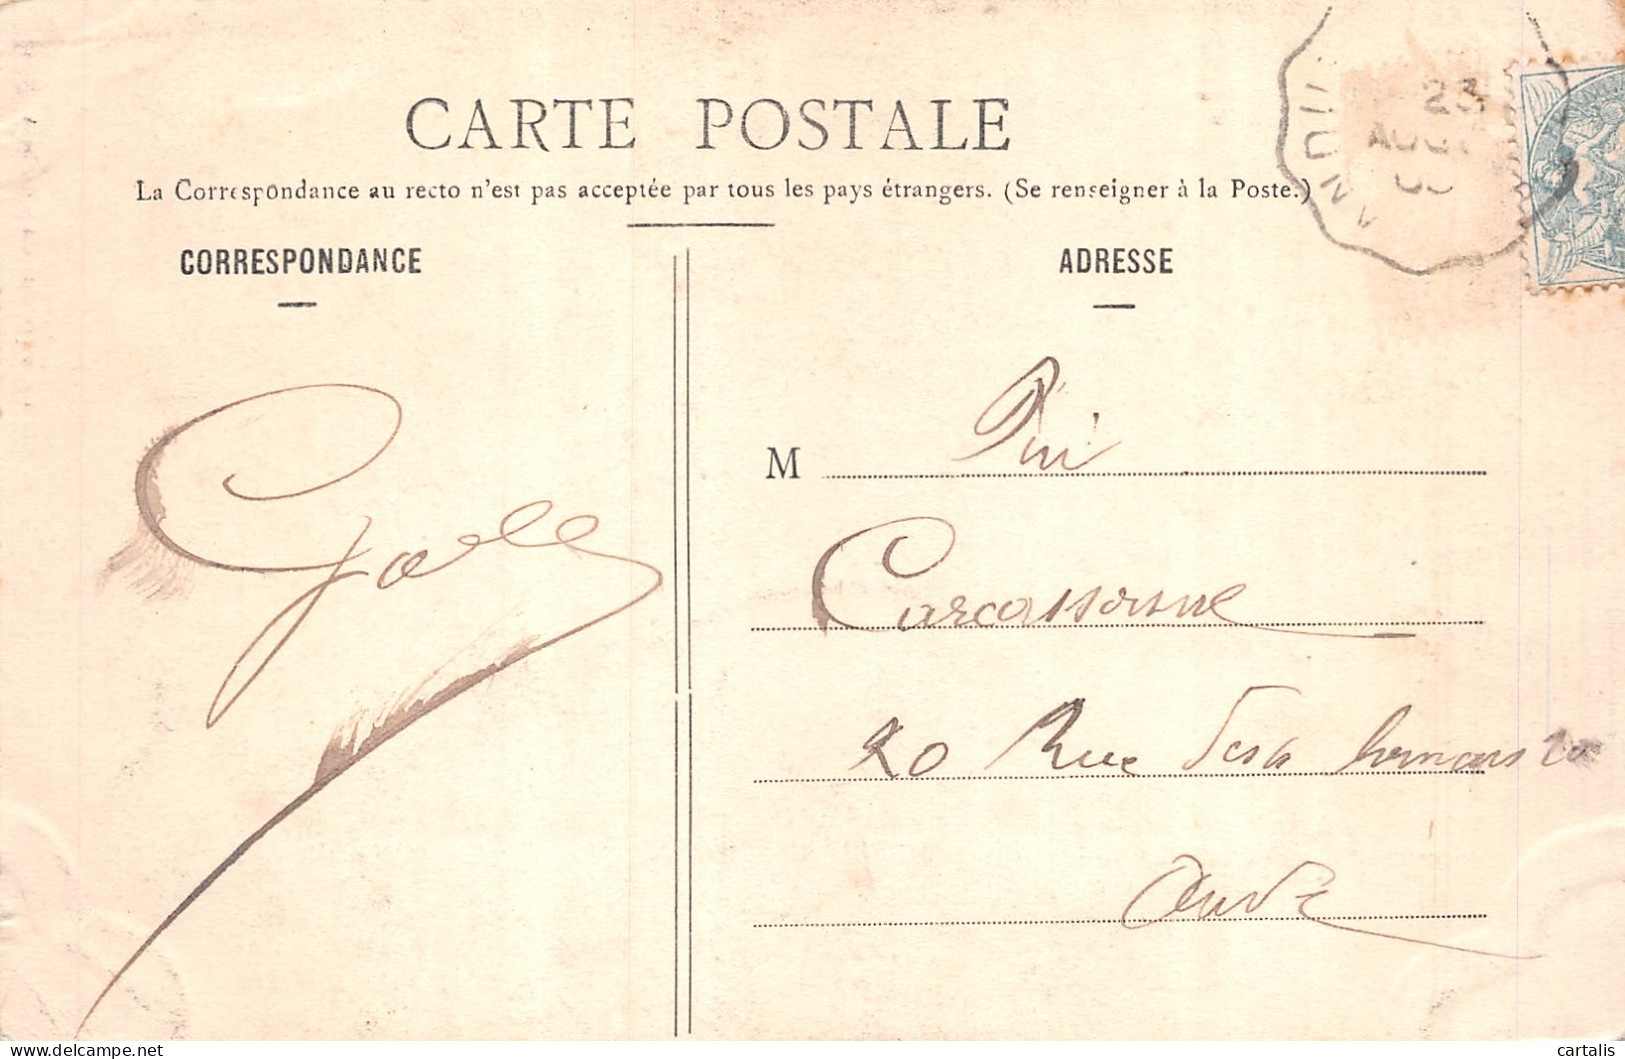 CARTE POSTALE
La Correspondance au recto n'est pas acceptée par tous les pays étrangers. (Se renseigner à la Poste.)
CORRESPONDANCE
ADRESSE
23
AOUT
M
Carcassonne
20 Rue
Aude
www.delcampe.net
cartalis